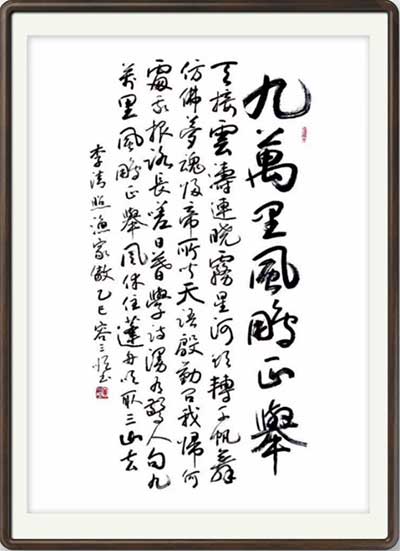 九萬里風鵬正舉
天接雲濤連晓霧星河欲轉千帆舞
仿佛夢魂歸帝所闻天語殷勤问我歸何
處我报路長嗟日暮學詩謾有驚人句九
萬里風鵬正舉風休住蓬舟吹取三山去
李清照漁家傲乙巳